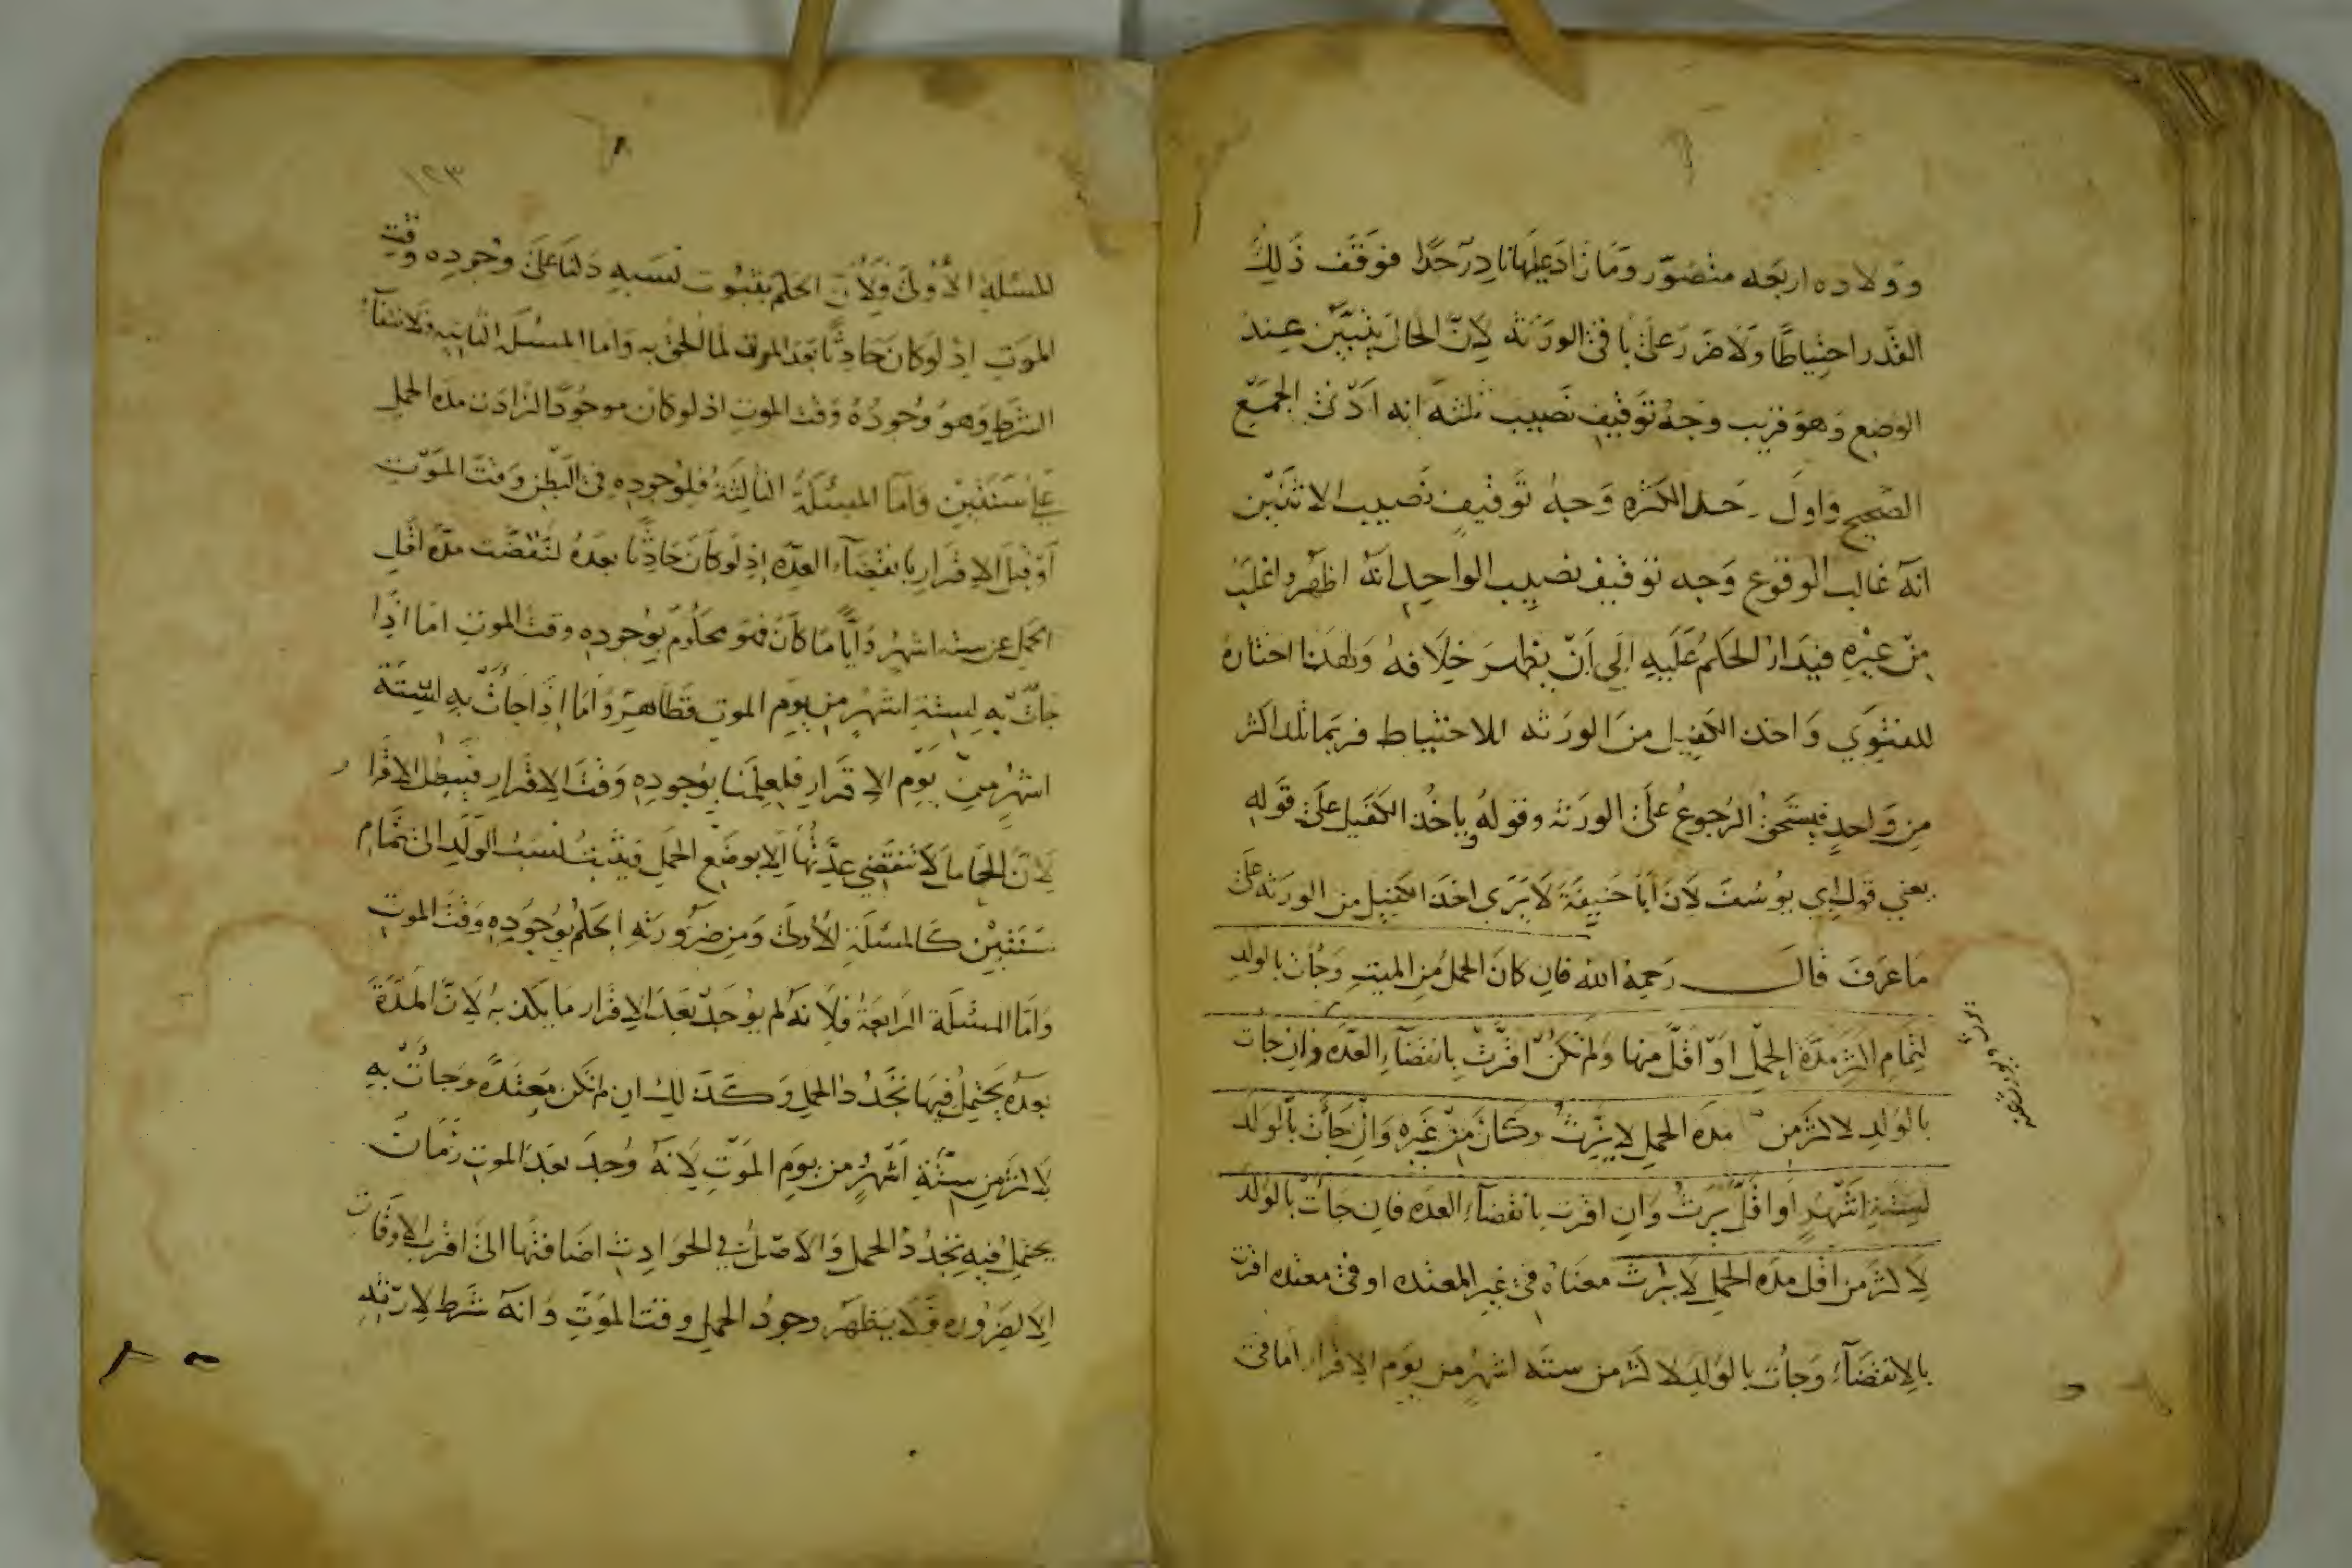 وولاده اربعه متصور وما زاد عليها نادر جدا فوقف ذلك
القدر احتياطا ولا ضرر على باقى الورثه لان الحال يتبين عند
الوضع وهو قريب وجه توقيف نصيب ثلثه انه ادنى الجمع
الصحيح واول حد الكثره وجه توقيف نصيب الاثنين
انه غالب الوقوع وجه توقيف نصيب الواحد انه اظهر واغلب
من غيره فيدار الحكم عليه الى ان يظهر خلافه ولهذا اختاره
للفتوي واخذ الكفيل من الورثه للاحتياط فربما تلد اكثر
من واحد فيستحق الرجوع على الورثه وقوله وياخذ الكفيل على قوله
يعني قول ابي يوسف لان ابا حنيفة لا يرى اخذ الكفيل من الورثه على
ما عرف قال رحمه الله فان كان الحمل من الميت وجات بالولد
لتمام اكثر مدة الحمل او اقل منها ولم تكن اقرت بانقضاء العده وان جات
بالولد لاكثر من مده الحمل لا يرث وكان من غيره وان جات بالولد
لستة اشهر او اقل يرث وان اقرت بانقضاء العده فان جات بالولد
لاكثر من اقل مده الحمل لا يرث معناه فى غير المعتده او فى معتده اقرت
بالانقضاء وجات بالولد لاكثر من سته اشهر من يوم الاقرار اما فى
يرث ويورث عنه
١٢٣
المسئلة الاولى فلان الحكم بثبوت نسبه دلنا على وجوده وقت
الموت اذ لو كان حادثا بعد الموت لما الحق به واما المسئلة الثانيه فلانتفاء
الشرط وهو وجوده وقت الموت اذ لو كان موجودا لزادت مده الحمل
على سنتين واما المسئلة الثالثة فلوجوده فى البطن وقت الموت
او قبل الاقرار بانقضاء العده اذ لو كان حادثا بعده لنقضت مدة اقل
الحمل عن ستة اشهر وايا ما كان فهو محكوم بوجوده وقت الموت اما اذا
جات به لستة اشهر من يوم الموت فظاهر واما اذا جات به لستة
اشهر من يوم الاقرار فلعلمنا بوجوده وقت الاقرار فيبطل الاقرار
لان الحامل لا تنقضي عدتها الا بوضع الحمل فيثبت نسب الولد الى تمام
سنتين كالمسئلة الاولى ومن ضرورته الحكم بوجوده وقت الموت
واما المسئلة الرابعة فلانه لم يوجد بعد الاقرار ما يكذبه لان المدة
بعده يحتمل فيها تجدد الحمل وكذلك ان لم تكن معتدة وجات به
لاكثر من ستة اشهر من يوم الموت لانه وجد بعد الموت زمان
يحتمل فيه تجدد الحمل والاصل فى الحوادث اضافتها الى اقرب الاوقات
الا لضروره فلا يظهر وجود الحمل وقت الموت وانه شرط لارثه